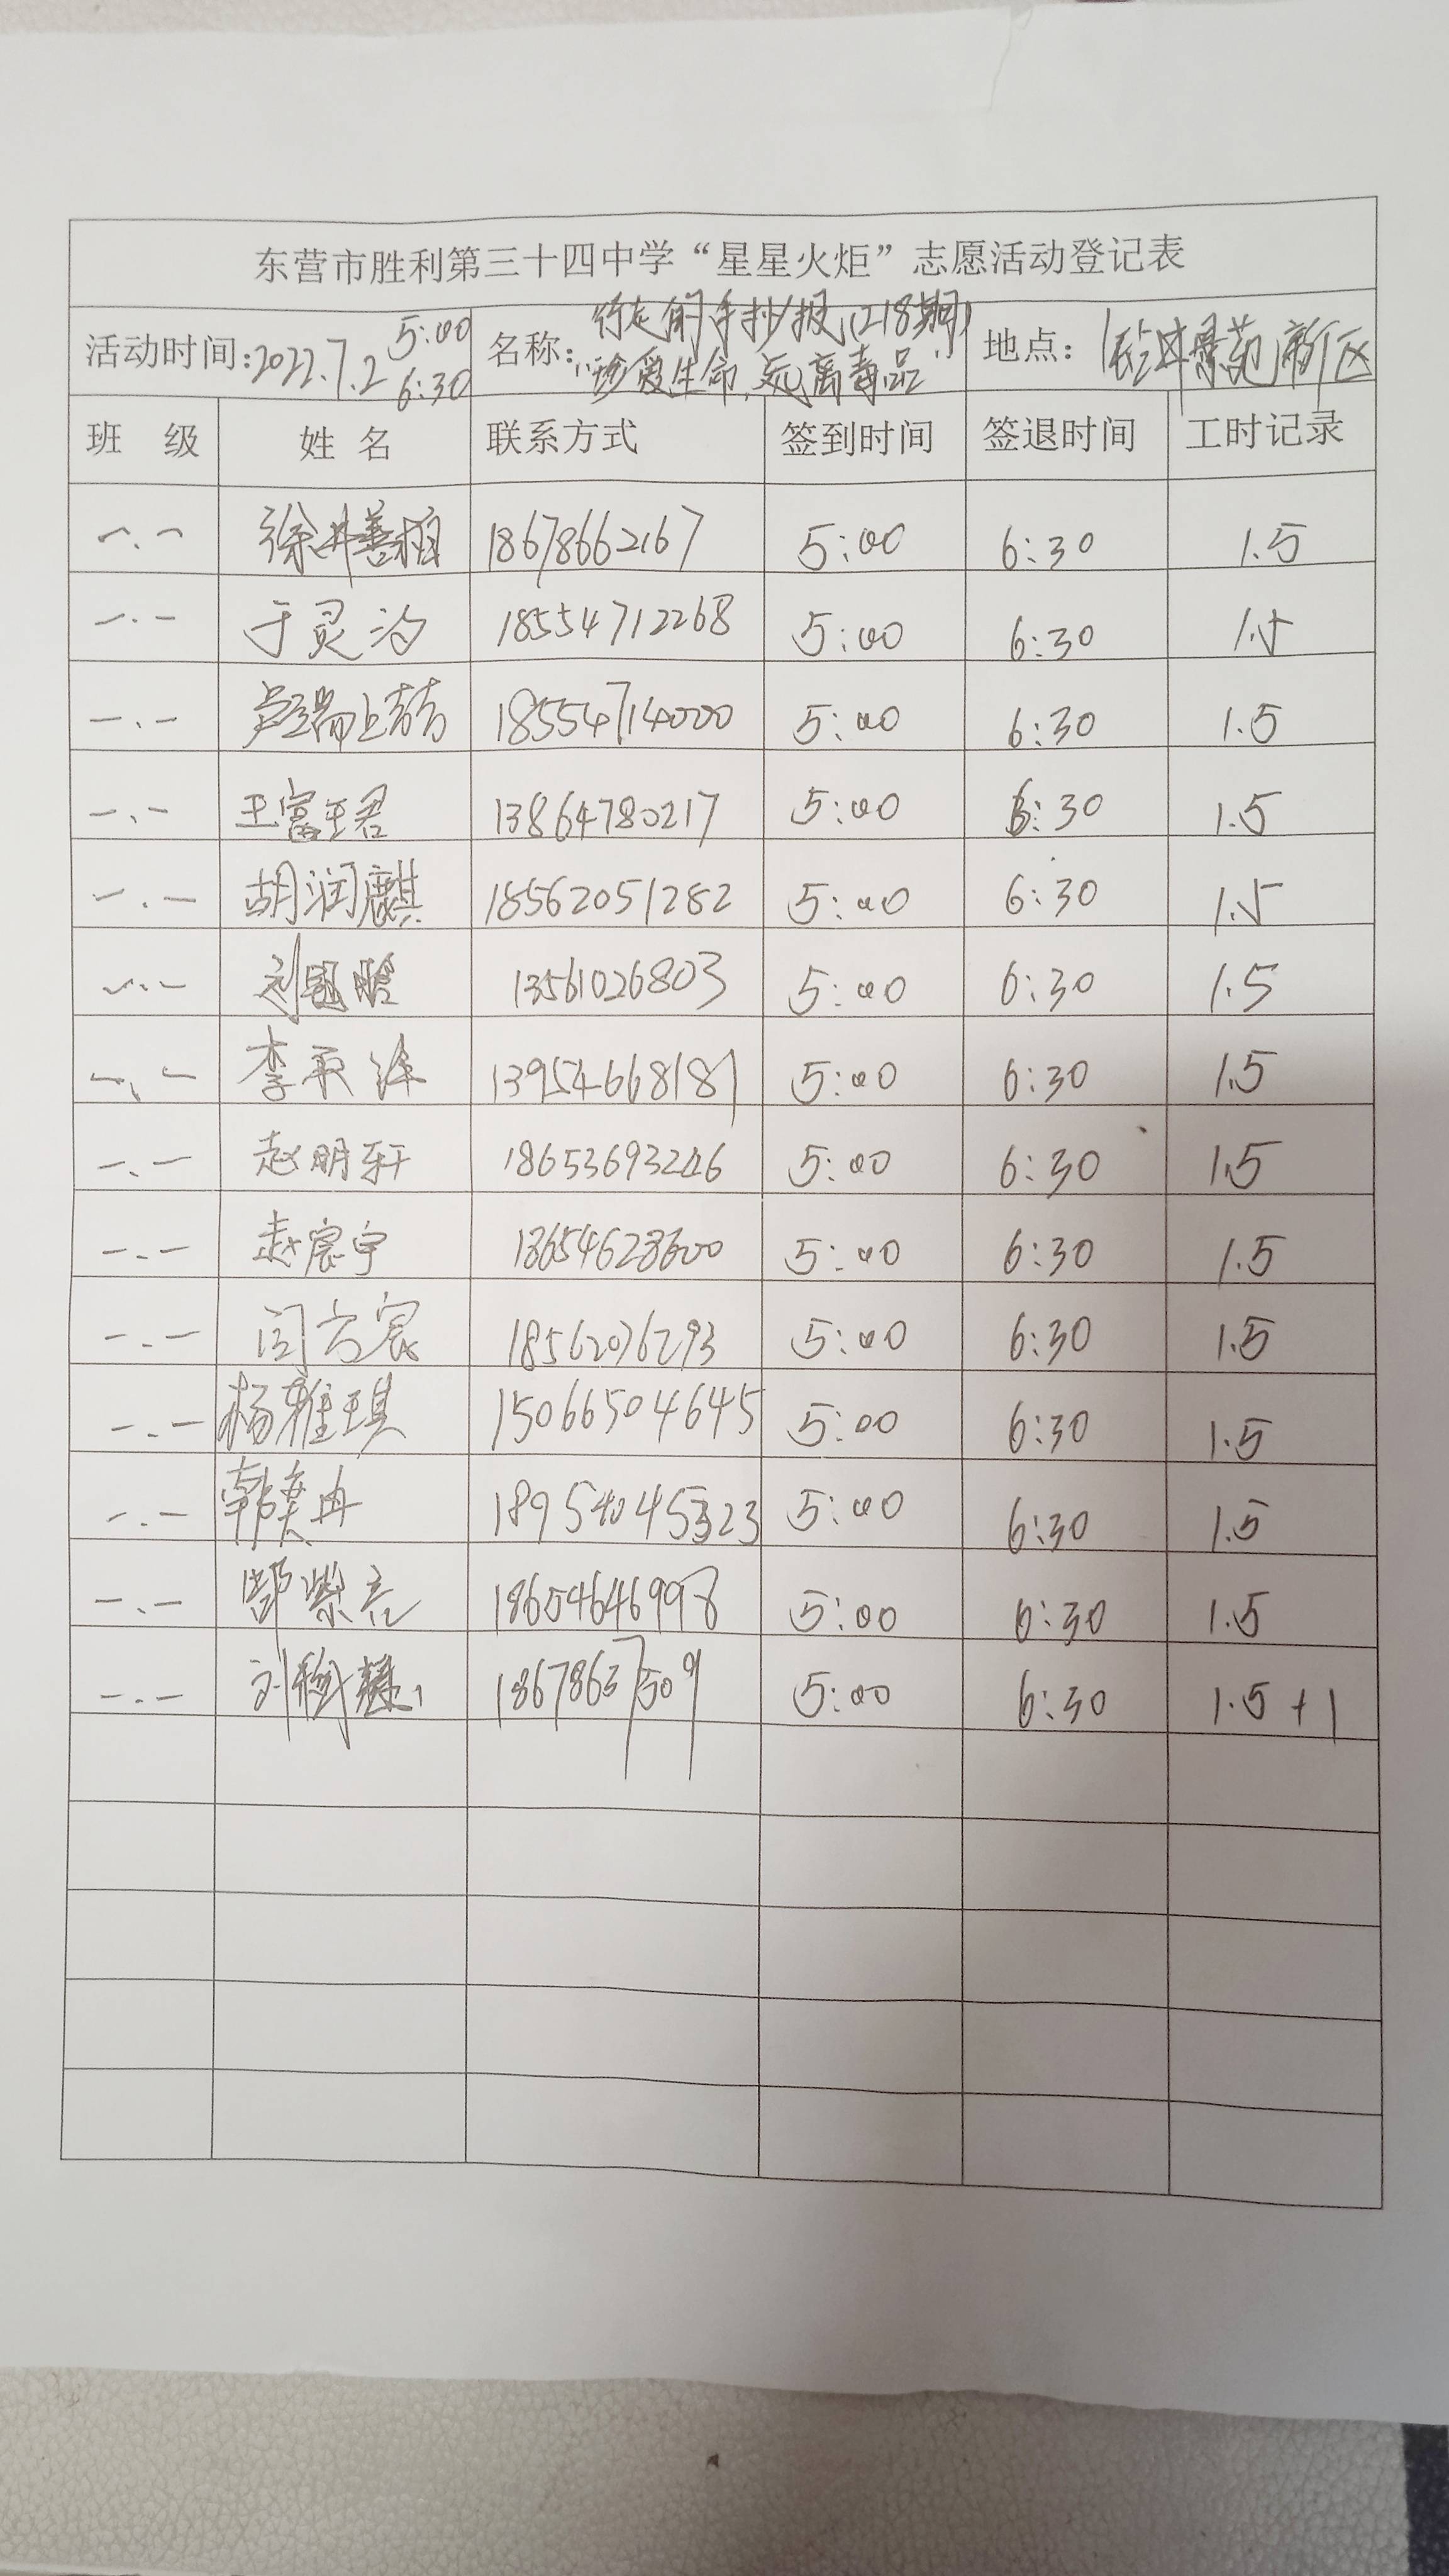 东营市胜利第三十四中学“星星火炬”志愿活动登记表
活动时间:2022.7.2 5:00 6:30 名称: 行走的手抄报(218期) "珍爱生命,远离毒品" 地点: 钻井景苑新区
班 级 姓 名 联系方式 签到时间 签退时间 工时记录
一.一 徐井善植 18678662167 5:00 6:30 1.5
一.一 于灵 18554712268 5:00 6:30 1.5
一.一 卢瑞喆 18554714000 5:00 6:30 1.5
一.一 王富 君 13864780217 5:00 6:30 1.5
一.一 胡润麒 18562051282 5:00 6:30 1.5
一.一 刘 晗 13561026803 5:00 6:30 1.5
一.一 李 泽 13954668181 5:00 6:30 1.5
一.一 赵明轩 18653693246 5:00 6:30 1.5
一.一 赵宸宇 18654623600 5:00 6:30 1.5
一.一 闫方宸 18562076293 5:00 6:30 1.5
一.一 杨雅琪 15066504645 5:00 6:30 1.5
一.一 韩奕冉 5:00 6:30 1.5
一.一 郜紫 18654646998 5:00 6:30 1.5
一.一 刘 18678637509 5:00 6:30 1.5+1